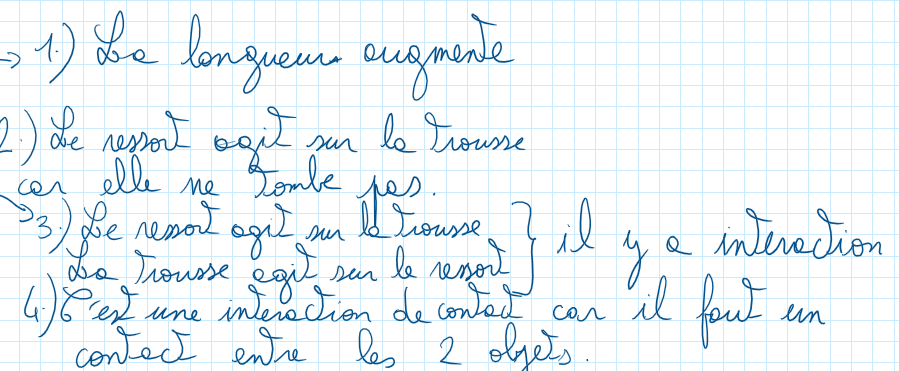 → 1.) La longueur augmente
2.) Le ressort agit sur la trousse
car elle ne tombe pas.
→ 3.) Le ressort agit sur la trousse } il y a interaction
La trousse agit sur le ressort
4.) C'est une interaction de contact car il faut un
contact entre les 2 objets.